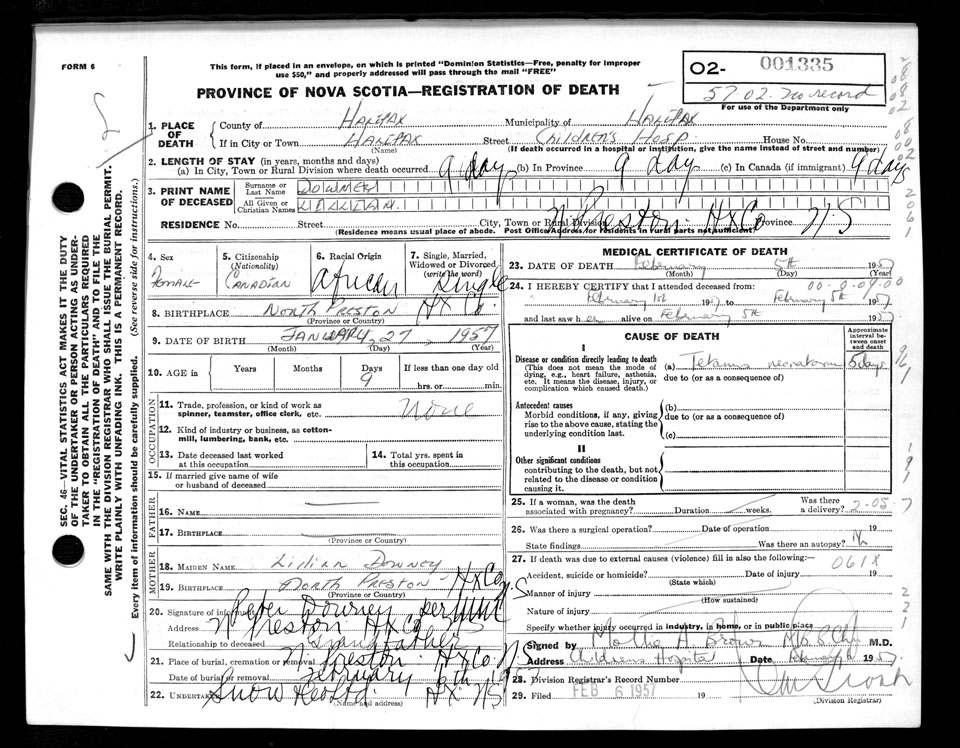 FORM 6
This form, if placed in an envelope, on which is printed "Dominion Statistics—Free, penalty for improper
use $50," and properly addressed will pass through the mail "FREE"
O2- 001335
57 02. no record
For use of the Department only
PROVINCE OF NOVA SCOTIA—REGISTRATION OF DEATH
1. PLACE OF DEATH
County of Halifax Municipality of Halifax
If in City or Town Halifax Street Children's Hosp. House No.
(Name) (If death occurred in a hospital or institution, give the name instead of street and number)
2. LENGTH OF STAY (in years, months and days)
(a) In City, Town or Rural Division where death occurred 9 days (b) In Province 9 day (c) In Canada (if immigrant) 9 days
3. PRINT NAME OF DECEASED
Surname or Last Name DOWNEY
All Given or Christian Names
RESIDENCE No. Street City, Town or Rural Division N Preston Hx Co Province N.S
(Residence means usual place of abode. Post Office Address for residents in rural parts not sufficient)
4. Sex Female
5. Citizenship (Nationality) Canadian
6. Racial Origin African
7. Single, Married, Widowed or Divorced (write the word) Single
8. BIRTHPLACE North Preston Hx Co.
(Province or Country)
9. DATE OF BIRTH January 27 1957
(Month) (Day) (Year)
10. AGE in Years Months Days 9 If less than one day old
hrs. or min.
OCCUPATION
11. Trade, profession, or kind of work as spinner, teamster, office clerk, etc. None
12. Kind of industry or business, as cotton-mill, lumbering, bank, etc.
13. Date deceased last worked at this occupation
14. Total yrs. spent in this occupation
15. If married give name of wife or husband of deceased
FATHER
16. NAME
17. BIRTHPLACE
(Province or Country)
MOTHER
18. MAIDEN NAME Lillian Downey
19. BIRTHPLACE North Preston Hx Co N.S
(Province or Country)
20. Signature of informant Peter Downey per
Address N Preston Hx Co
Relationship to deceased Grandfather
21. Place of burial, cremation or removal N Preston Hx Co N S
Date of burial or removal February 6th
22. UNDERTAKER Snow & Co Ltd. Hx N S
(Name and address)
MEDICAL CERTIFICATE OF DEATH
23. DATE OF DEATH February 5th 1957
(Month) (Day) (Year)
24. I HEREBY CERTIFY that I attended deceased from:
00-0-09-00
February 1st 1957 to February 5th 1957
and last saw her alive on February 5th 1957
CAUSE OF DEATH
Approximate interval between onset and death
I
Disease or condition directly leading to death
(This does not mean the mode of dying, e.g., heart failure, asthenia, etc. It means the disease, injury, or complication which caused death.)
(a) Tetanus neonatorum 5 days
due to (or as a consequence of)
Antecedent causes
Morbid conditions, if any, giving rise to the above cause, stating the underlying condition last.
(b)
due to (or as a consequence of)
(c)
II
Other significant conditions
contributing to the death, but not related to the disease or condition causing it.
25. If a woman, was the death associated with pregnancy? Duration weeks. Was there a delivery? 2-05-7
26. Was there a surgical operation? Date of operation 19
State findings Was there an autopsy? No
27. If death was due to external causes (violence) fill in also the following:—
061X
Accident, suicide or homicide? Date of injury 19
(State which)
Manner of injury
(How sustained)
Nature of injury
Specify whether injury occurred in industry, in home, or in public place
Signed by Mollie A Brown M.D.
Address Childrens Hospital Date 1957
28. Division Registrar's Record Number
29. Filed FEB 6 1957 19
(Division Registrar)
SEC. 46—VITAL STATISTICS ACT MAKES IT THE DUTY
OF THE UNDERTAKER OR PERSON ACTING AS UNDER-
TAKER TO OBTAIN ALL THE PARTICULARS REQUIRED
IN THE "REGISTRATION OF DEATH" AND TO FILE THE
SAME WITH THE DIVISION REGISTRAR WHO SHALL ISSUE THE BURIAL PERMIT.
WRITE PLAINLY WITH UNFADING INK. THIS IS A PERMANENT RECORD.
Every item of information should be carefully supplied. (See reverse side for instructions.)